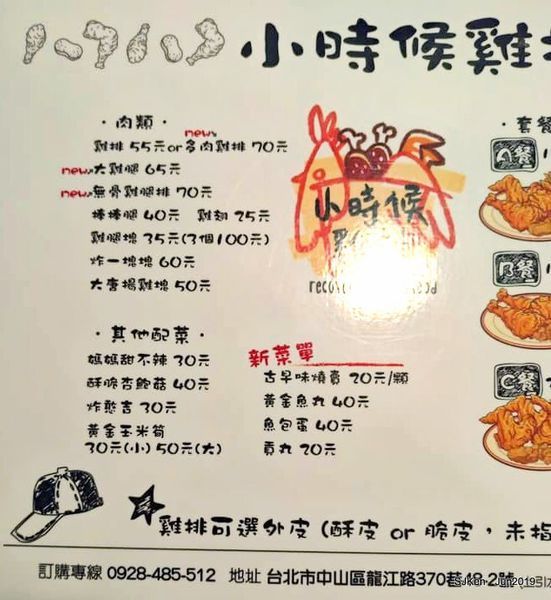 小時候雞
・肉類・
new
雞排 55元or多肉雞排 70元
new 大雞腿 65元
new 無骨雞腿排 70元
棒棒腿 40元 雞翅 25元
雞腿塊 35元(3個100元)
炸一塊塊 60元
大唐揚雞塊 50元
小時候
・其他配菜・
媽媽甜不辣 30元
酥脆杏鮑菇 40元
炸憨吉 30元
黃金玉米筍
30元(小) 50元(大)
新菜單
古早味燒賣 20元/顆
黃金魚丸 40元
魚包蛋 40元
貢丸 20元
・套餐
A餐
B餐
C餐
雞排可選外皮 (酥皮 or 脆皮，未指
訂購專線 0928-485-512 地址 台北市中山區龍江路370巷48-2號